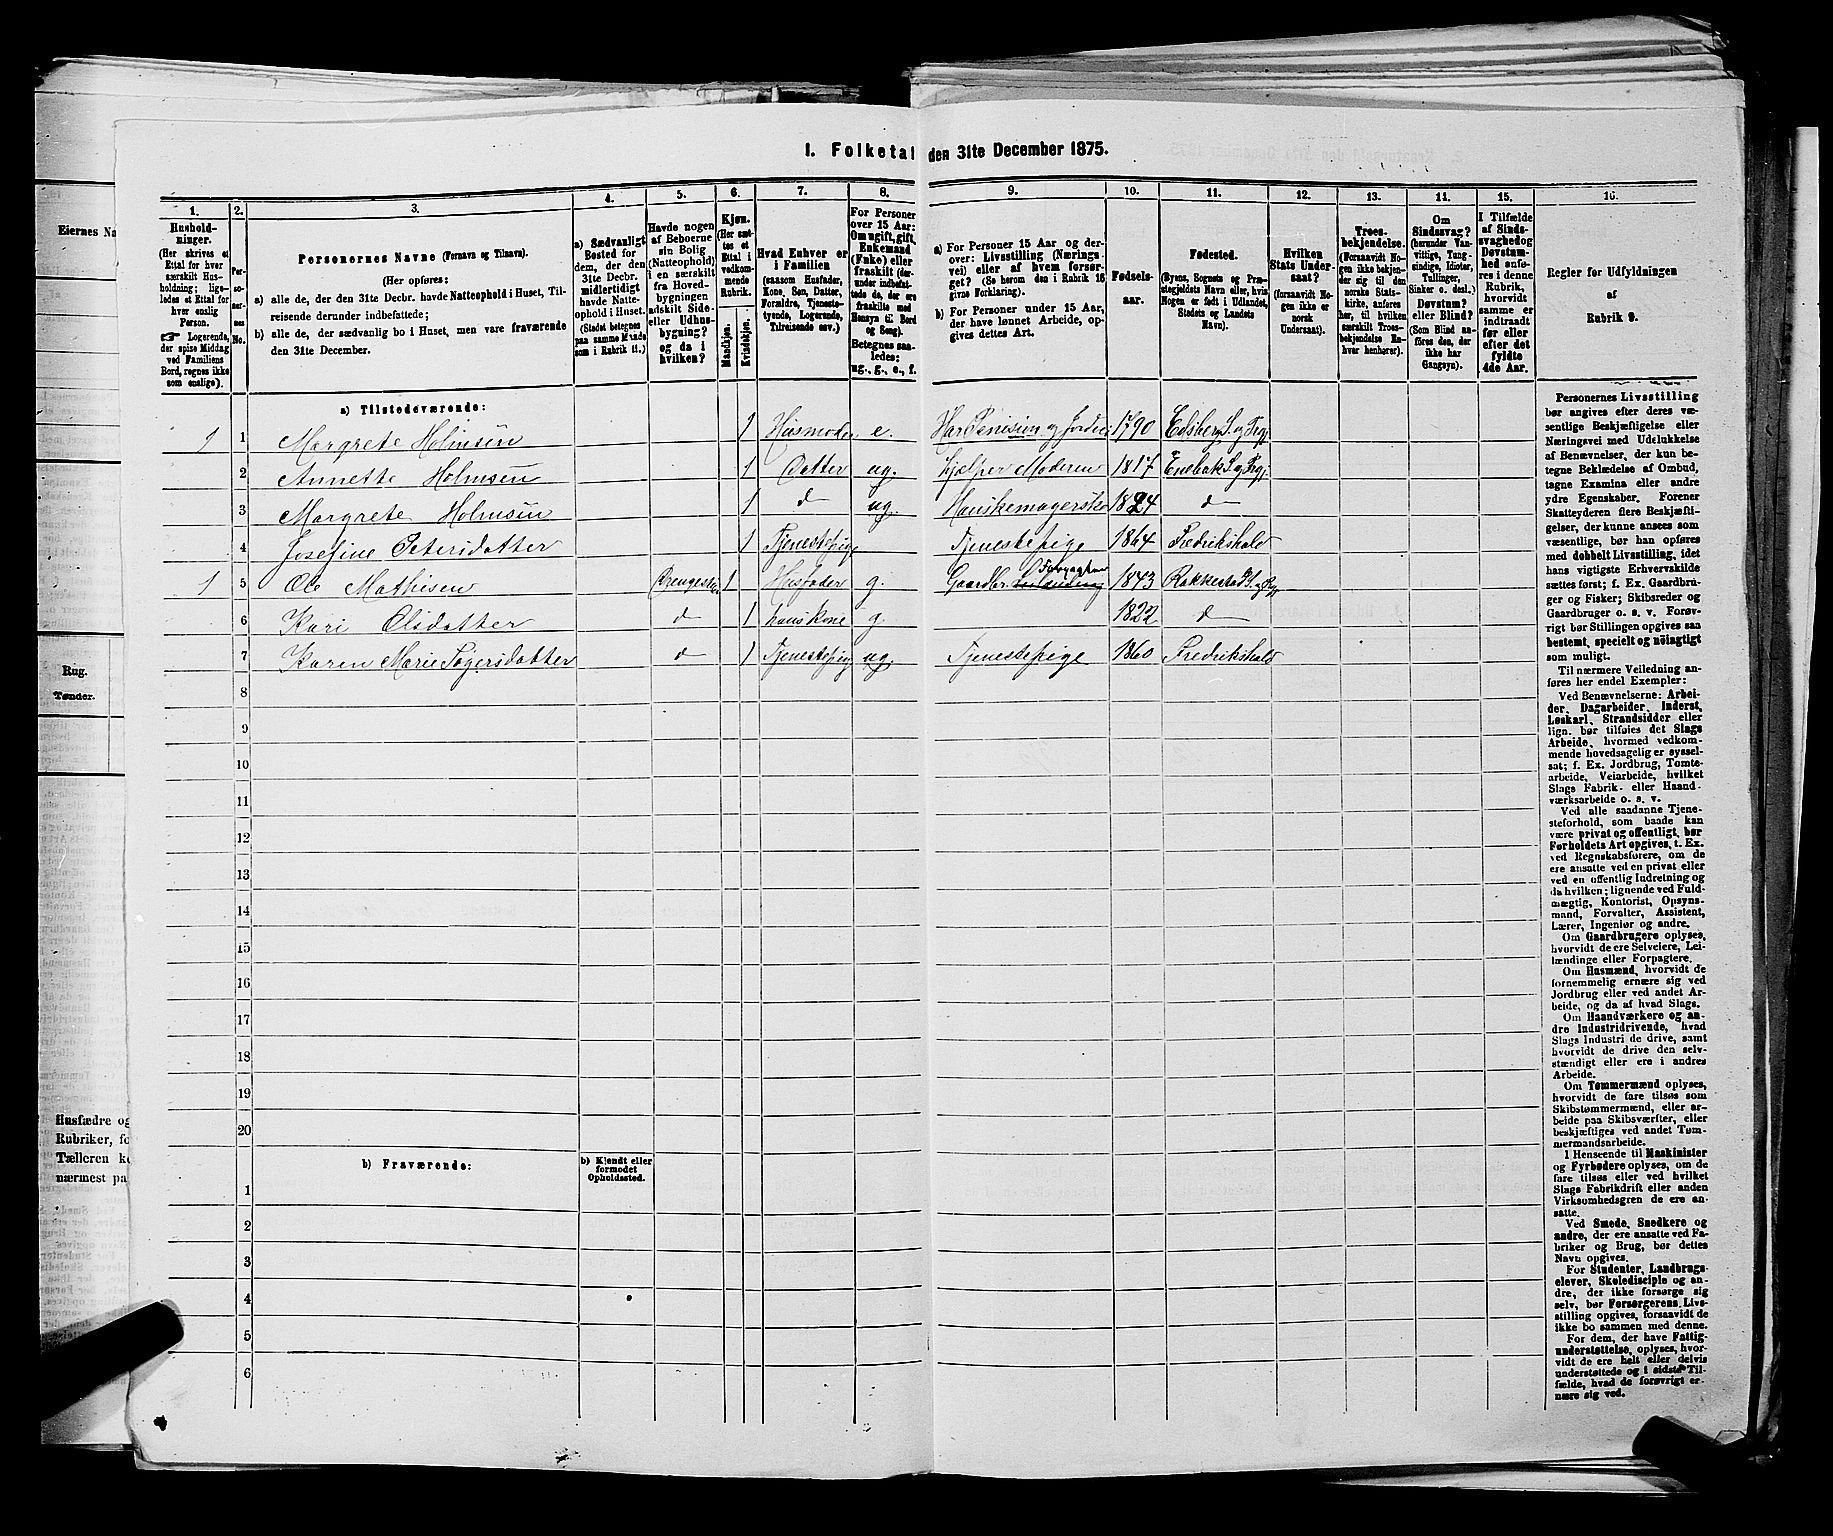 I. Folketal den 31te December 1875.
1. 2. 3. 4. 5. 6. 7. 8. 9. 10. 11. 12. 13. 14. 15. 16.
Eiernes Na
Rug.
Tønder.
Husfædre og
Rubriker, fo
Tælleren ke
nærmest pa
Hushold-
ninger.
(Her skrives et
Ettal for hver
særskilt Hus-
holdning; lige-
ledes et Ettal for
hver enslig
Person.
☞ Logerende,
der spise Middag
ved Familiens
Bord, regnes ikke
som enslige).
Per-
so-
ner-
nes
No.
Personernes Navne (Fornavn og Tilnavn).
(Her opføres:
a) alle de, der den 31te Decbr. havde Natteophold i Huset, Til-
reisende derunder indbefattede;
b) alle de, der sædvanlig bo i Huset, men vare fraværende
den 31te December.
a) Sædvanligt
Bosted for
dem, der den
31te Decbr.
midlertidigt
havde Natte-
ophold i Huset.
(Stedet betegnes
paa samme Maade
som i Rubrik 11.)
Havde nogen
af Beboerne
sin Bolig
(Natteophold)
i en særskilt
fra Hoved-
bygningen
adskilt Side-
eller Udhus-
bygning?
og da i
hvilken?
Kjøn.
(Her sæt-
tes et
Ettal i
vedkom-
mende
Rubrik.
Mandkjøn.
Kvindekjøn.
Hvad Enhver er
i Familien
(saasom Husfader,
Kone, Søn, Datter,
Forældre, Tjeneste-
tyende, Logerende,
Tilreisende osv.)
For Personer
over 15 Aar:
Om ugift, gift,
Enkemand
(Enke) eller
fraskilt (der-
under indbefat-
tede de, der ere
fraskilte med
Hensyn til Bord
og Seng).
Betegnes saa-
ledes:
ug., g., e., f.
a) For Personer 15 Aar og der-
over: Livsstilling (Nærings-
vei) eller af hvem forsør-
get? (Se herom den i Rubrik 16
givne Forklaring).
b) For Personer under 15 Aar,
der have lønnet Arbeide, op-
gives dettes Art.
Fødsels-
aar.
Fødested.
(Byens, Sognets og Præ-
stegjeldets Navn eller, hvis
Nogen er født i Udlandet,
Stedets og Landets
Navn).
Hvilken
Stats Under-
saat?
(forsaavidt No-
gen ikke er
norsk
Undersaat).
Troes-
bekjendelse.
(Forsaavidt No-
gen ikke bekjen-
der sig til den
norske Stats-
kirke, anføres
her, til hvilken
særskilt Troes-
bekjendelse En-
hver henhører).
Om
Sindssvag?
(herunder Van-
vittige, Tung-
sindige, Idioter,
Tullinger,
Sinker o. desl.)
Døvstum?
eller Blind?
(Som Blind an-
føres den, der
ikke har
Gangsyn).
I Tilfælde
af Sinds-
svaghed og
Døvstum-
hed anfø-
res i denne
Rubrik,
hvorvidt
samme er
indtraadt
før eller
efter det
fyldte
4de Aar.
Regler for Udfyldningen
af
Rubrik 9.
a) Tilstedeværende:
1 1 Margrete Holmsen 1 Husmoder e. Har Pension og 1790 Edsberg S. og Prgj
2 Annette Holmsen 1 Datter ug. hjælper Moderen 1817 Enebak S. og Prgj
3 Margrete Holmsen 1 d ug. 1824 d
4 Josefine Petersdatter 1 Tjenestepige Tjenestepige 1864 Fredrikshald
1 5 Ole Mathisen 1 Husfader g. Gaardbr. Forpagter 1843 Rakkestad S. og Pgj
6 Kari Olsdatter d 1 hans Kone g. 1822 d
7 Karen Marie d 1 Tjenestepige ug. Tjenestepige 1860 Fredrikshald
8
9
10
11
12
13
14
15
16
17
18
19
20
b) Fraværende:
b) Kjendt eller
formodet
Opholdssted.
1
2
3
4
5
6
Personernes Livsstilling
bør angives efter deres væ-
sentlige Beskjæftigelse eller
Næringsvei med Udelukkelse
af Benævnelser, der kun be-
tegne Beklædelse af Ombud,
tagne Examina eller andre
ydre Egenskaber. Forener
Skatteyderen flere Beskjæfti-
gelser, der kunne ansees som
væsentlige, bør han opføres
med dobbelt Livsstilling, idet
hans vigtigste Erhvervskilde
sættes først; f. Ex. Gaardbru-
ger og Fisker; Skibsreder og
Gaardbruger o. s. v. Forøv-
rigt bør Stillingen opgives saa
bestemt, specielt og nøiagtigt
som muligt.
Til nærmere Veiledning an-
føres her endel Exempler:
Ved Benævnelserne: Arbei-
der, Dagarbeider, Inderst,
Løskarl, Strandsidder eller
lign. bør tilføies det Slags
Arbeide, hvormed vedkom-
mende hovedsagelig er syssel-
sat; f. Ex. Jordbrug, Tomte-
arbeide, Veiarbeide, hvilket
Slags Fabrik- eller Haand-
værksarbeide o. s. v.
Ved alle saadanne Tjene-
steforhold, som baade kan
være privat og offentligt, bør
Forholdets Art opgives, t. Ex.
ved Regnskabsførere, om de
ere ansatte ved en privat eller
ved en offentlig Indretning og
da hvilken; lignende ved Fuld-
mægtig, Kontorist, Opsyns-
mand, Forvalter, Assistent,
Lærer, Ingeniør og andre.
Om Gaardbrugere oplyses,
hvorvidt de ere Selveiere, Lei-
lændinge eller Forpagtere.
Om Husmænd, hvorvidt de
fornemmelig ernære sig ved
Jordbrug eller ved andet Ar-
beide, og da af hvad Slags.
Om Haandværkere og an-
dre Industridrivende, hvad
Slags Industri de drive, samt
hvorvidt de drive den selv-
stændigt eller ere i andres
Arbeide.
Om Tømmermænd oplyses,
hvorvidt de fare tilsøs som
Skibstømmermænd, eller ar-
beide paa Skibsværfter, eller
beskjæftiges ved andet Tøm-
mermandsarbeide.
I Henseende til Maskinister
og Fyrbødere oplyses, om de
fare tilsøs eller ved hvilket
Slags Fabrikdrift eller anden
Virksomhedsgren de ere an-
satte.
Ved Smede, Snedkere og
andre, der ere ansatte ved Fa-
briker og Brug, bør dettes
Navn opgives.
For Studenter, Landbrugs-
elever, Skoledisciple og an-
dre, der ikke forsørge sig
selv, bør Forsørgerens Livs-
stilling opgives, forsaavidt de
ikke bo sammen med denne.
For dem, der have Fattig-
understøttelse, oplyses, hvor-
vidt de ere helt eller delvis
understøttede og i sidste Til-
fælde, hvad de forøvrigt er-
nære sig ved.